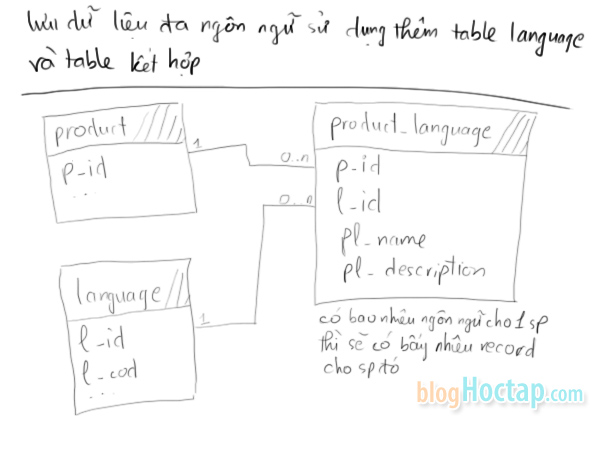 lưu dữ liệu đa ngôn ngữ sử dụng thêm table language
và table kết hợp
product
p_id
...
1
0..n
product_language
p_id
l_id
pl_name
pl_description
0..n
language
l_id
l_cod
...
1
có bao nhiêu ngôn ngữ cho 1 sp
thì sẽ có bấy nhiêu record
cho sp đó
blogHoctap.com